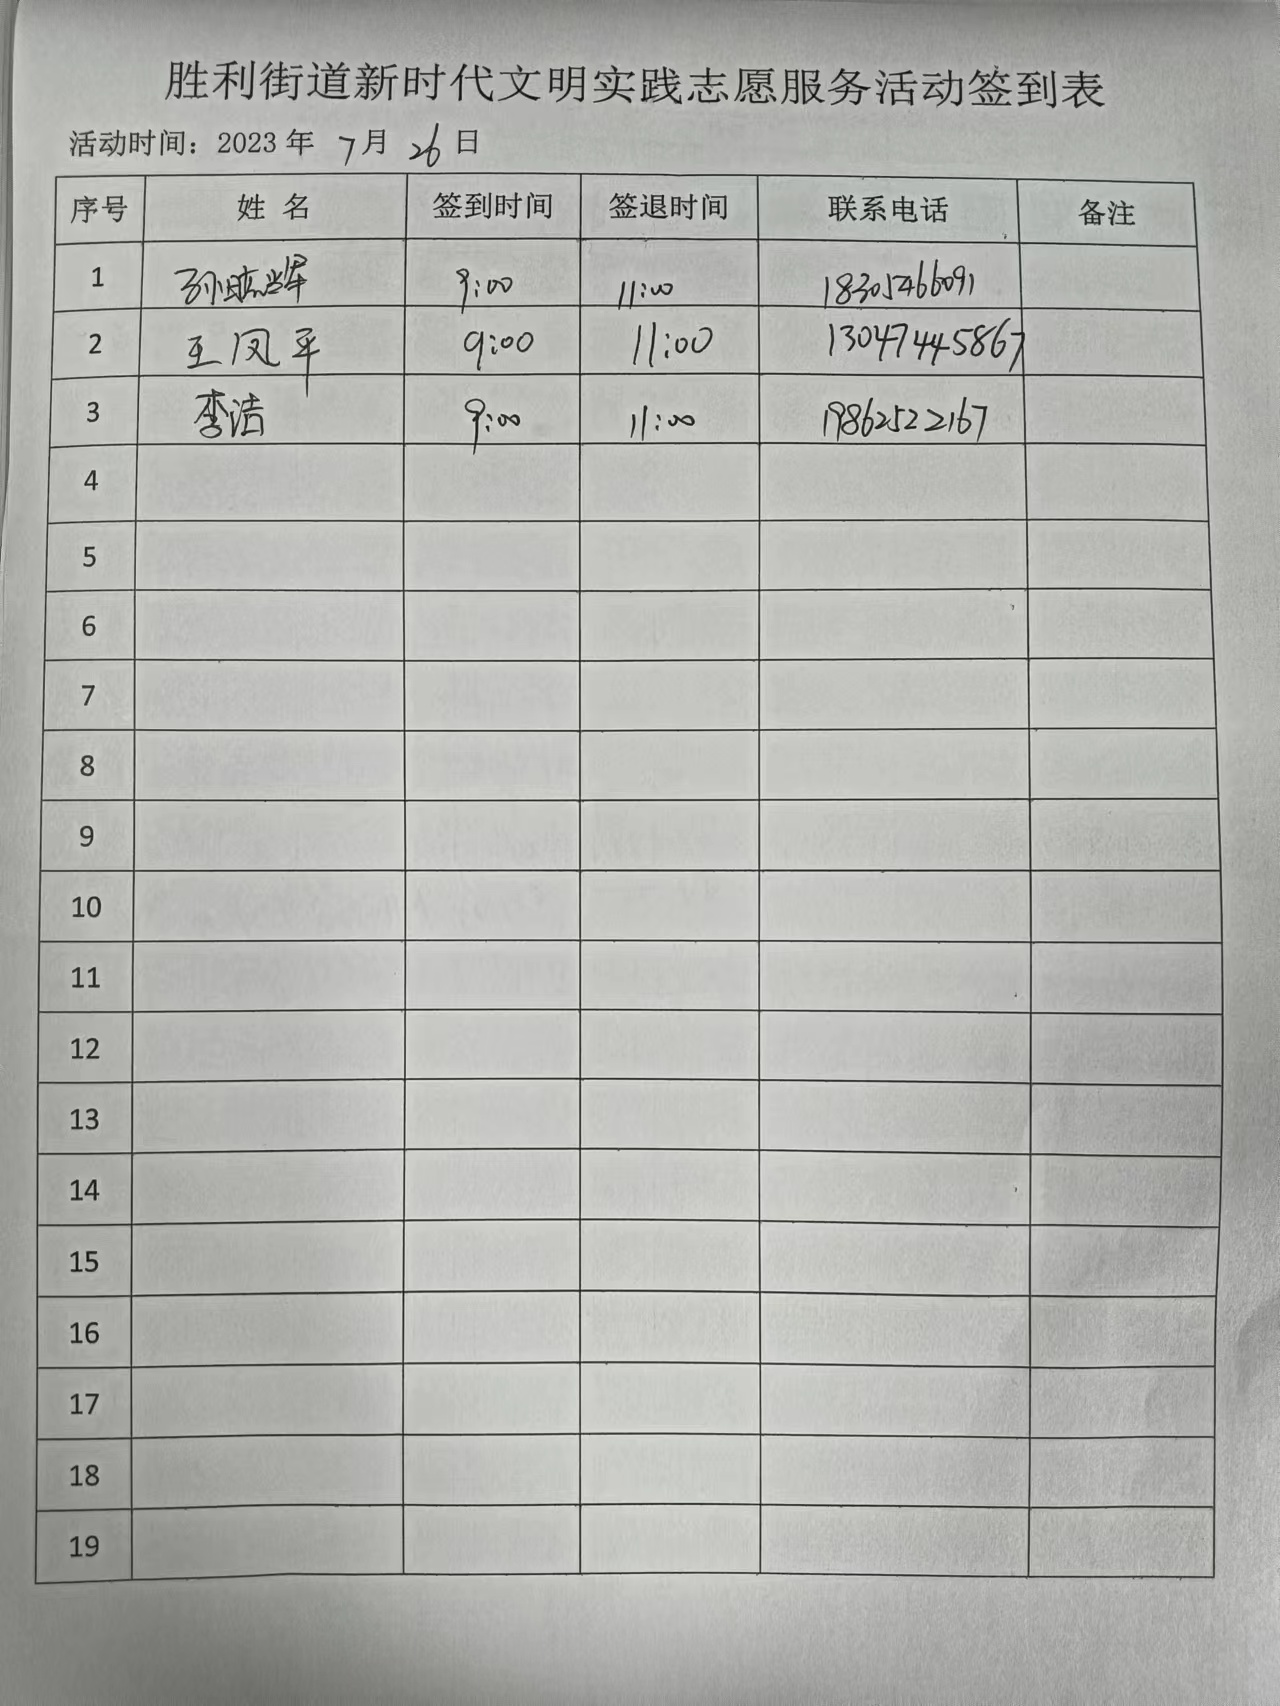 胜利街道新时代文明实践志愿服务活动签到表
活动时间：2023 年 7 月 26 日
序号 姓 名 签到时间 签退时间 联系电话 备注
1 孙晓辉 9:00 11:00 18305466091
2 王凤平 9:00 11:00 13047445867
3 李洁 9:00 11:00 19862522167
4
5
6
7
8
9
10
11
12
13
14
15
16
17
18
19